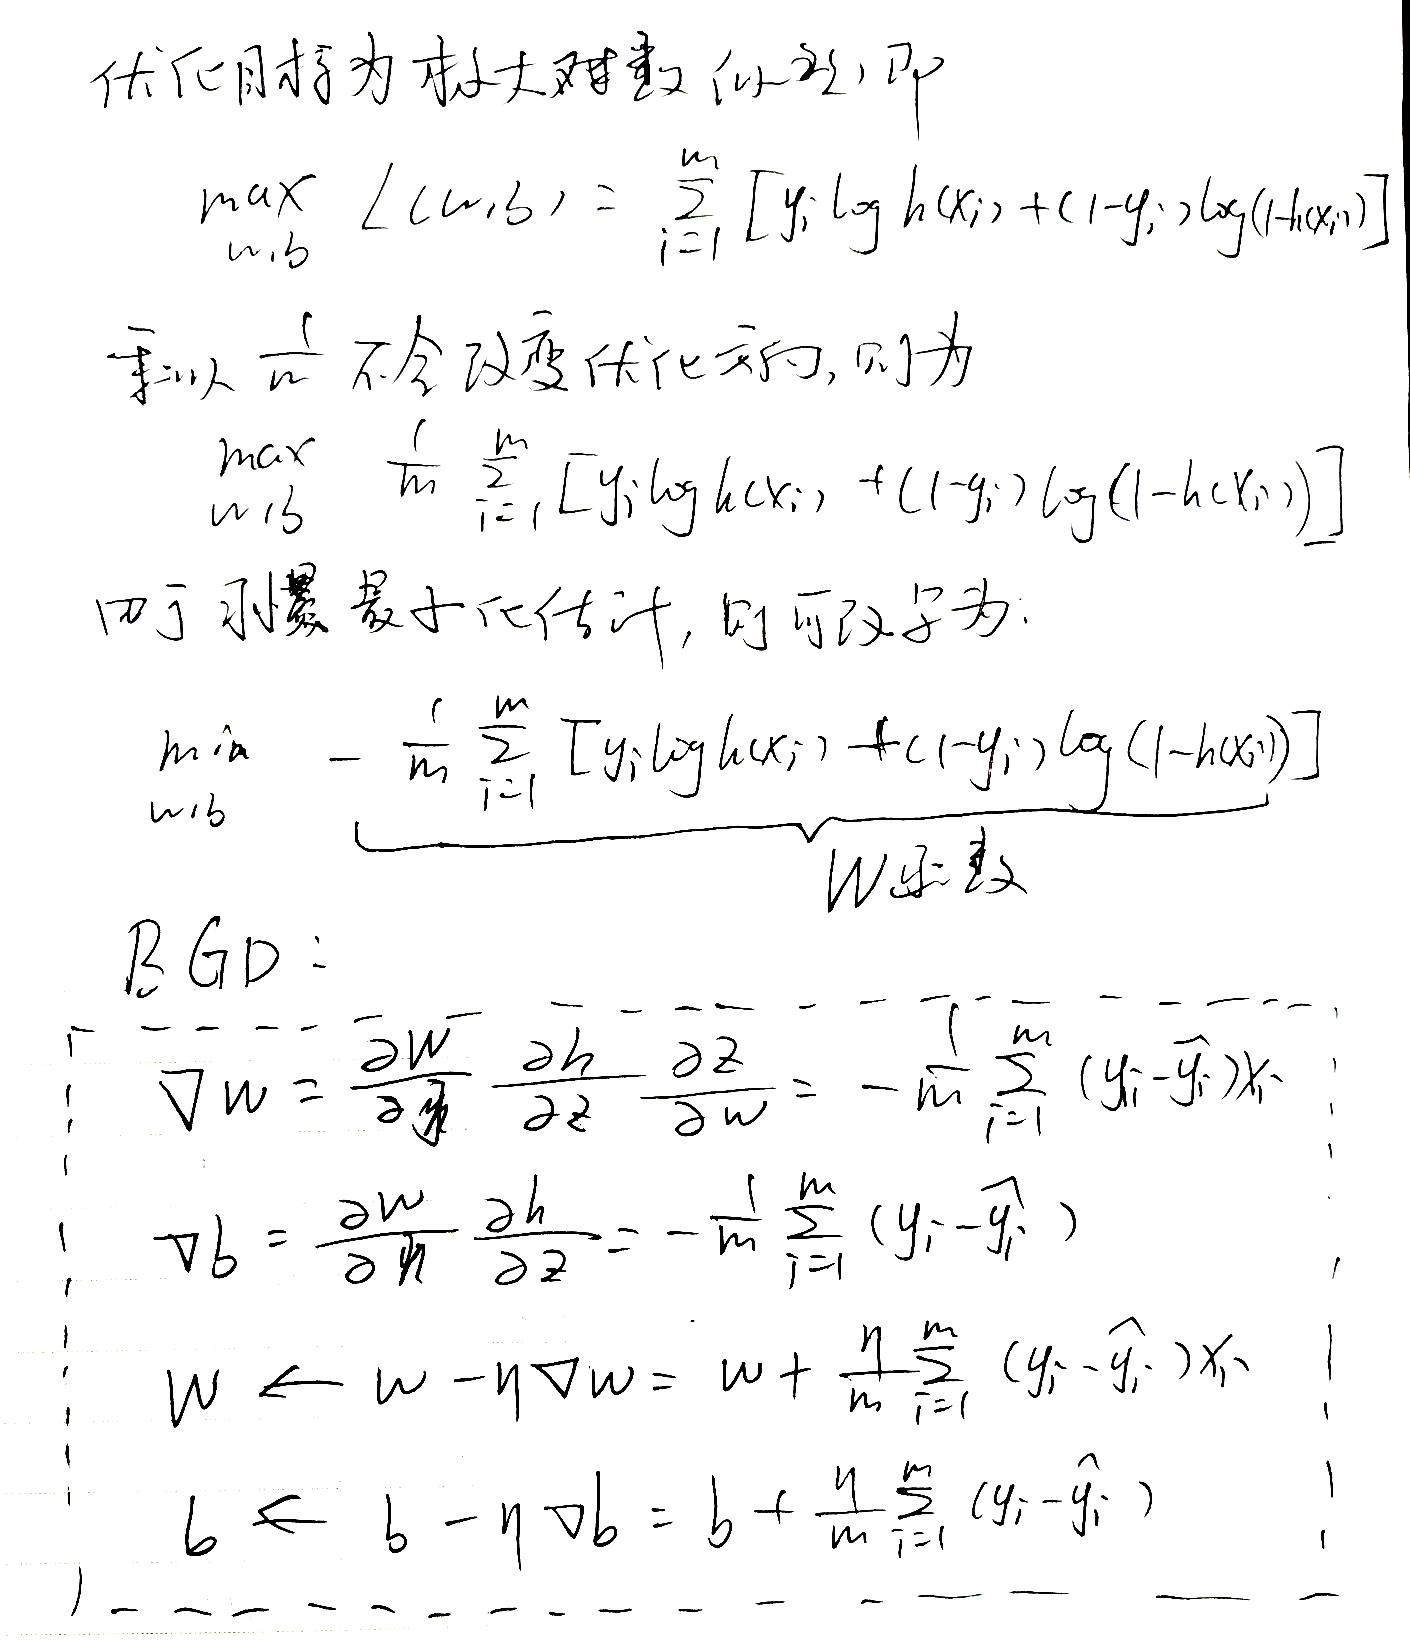 优化目标为极大对数似然,即
max L(w,b) = Σ_{i=1}^{m} [y_i log h(x_i) + (1-y_i) log(1-h(x_i))]
w,b
乘以 1/m 不会改变优化方向,则为
max 1/m Σ_{i=1}^{m} [y_i log h(x_i) + (1-y_i) log(1-h(x_i))]
w,b
由于习惯最小化估计,则可改写为:
min - 1/m Σ_{i=1}^{m} [y_i log h(x_i) + (1-y_i) log(1-h(x_i))]
w,b
W函数
BGD:
∇w = ∂W/∂h ∂h/∂z ∂z/∂w = - 1/m Σ_{i=1}^{m} (y_i - ŷ_i) x_i
∇b = ∂W/∂h ∂h/∂z = - 1/m Σ_{i=1}^{m} (y_i - ŷ_i)
w ← w - η∇w = w + η/m Σ_{i=1}^{m} (y_i - ŷ_i) x_i
b ← b - η∇b = b + η/m Σ_{i=1}^{m} (y_i - ŷ_i)